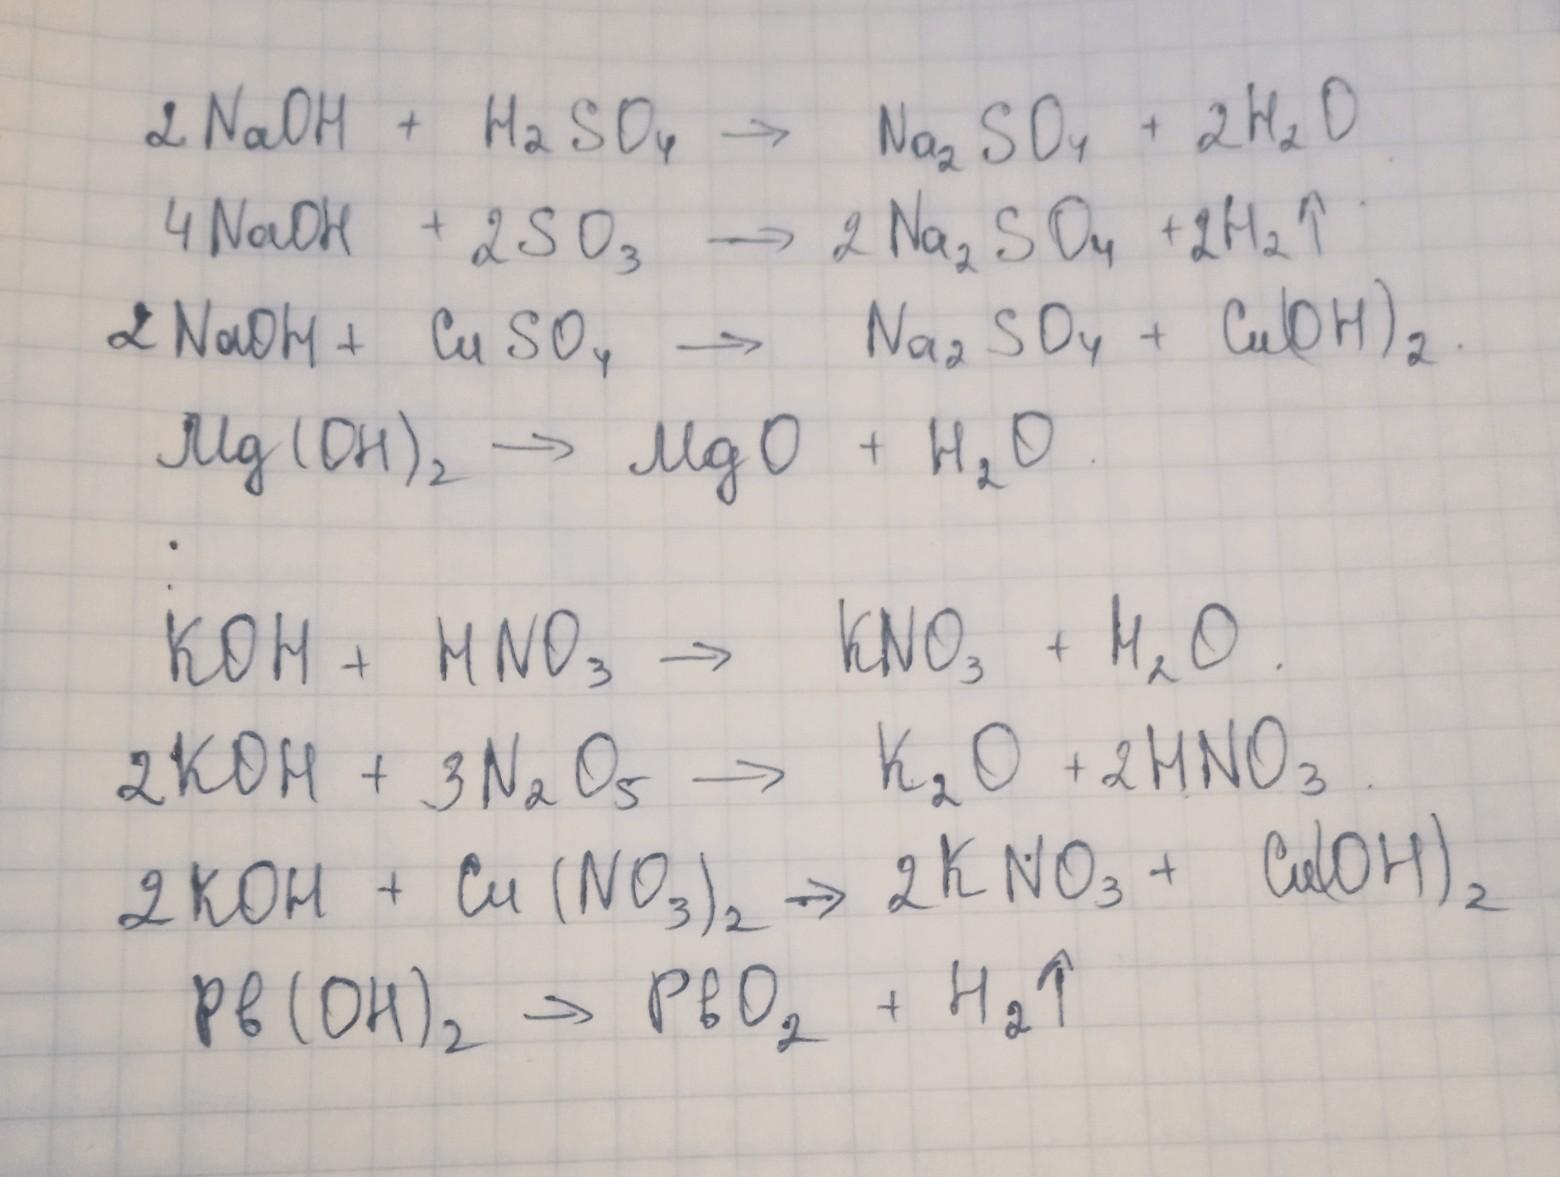 2NaOH + H₂SO₄ → Na₂SO₄ + 2H₂O
4NaOH + 2SO₃ → 2Na₂SO₄ + 2H₂↑
2NaOH + CuSO₄ → Na₂SO₄ + Cu(OH)₂.
Mg(OH)₂ → MgO + H₂O.
KOH + HNO₃ → KNO₃ + H₂O.
2KOH + 3N₂O₅ → K₂O + 2HNO₃.
2KOH + Cu(NO₃)₂ → 2KNO₃ + Cu(OH)₂
Pb(OH)₂ → PbO₂ + H₂↑